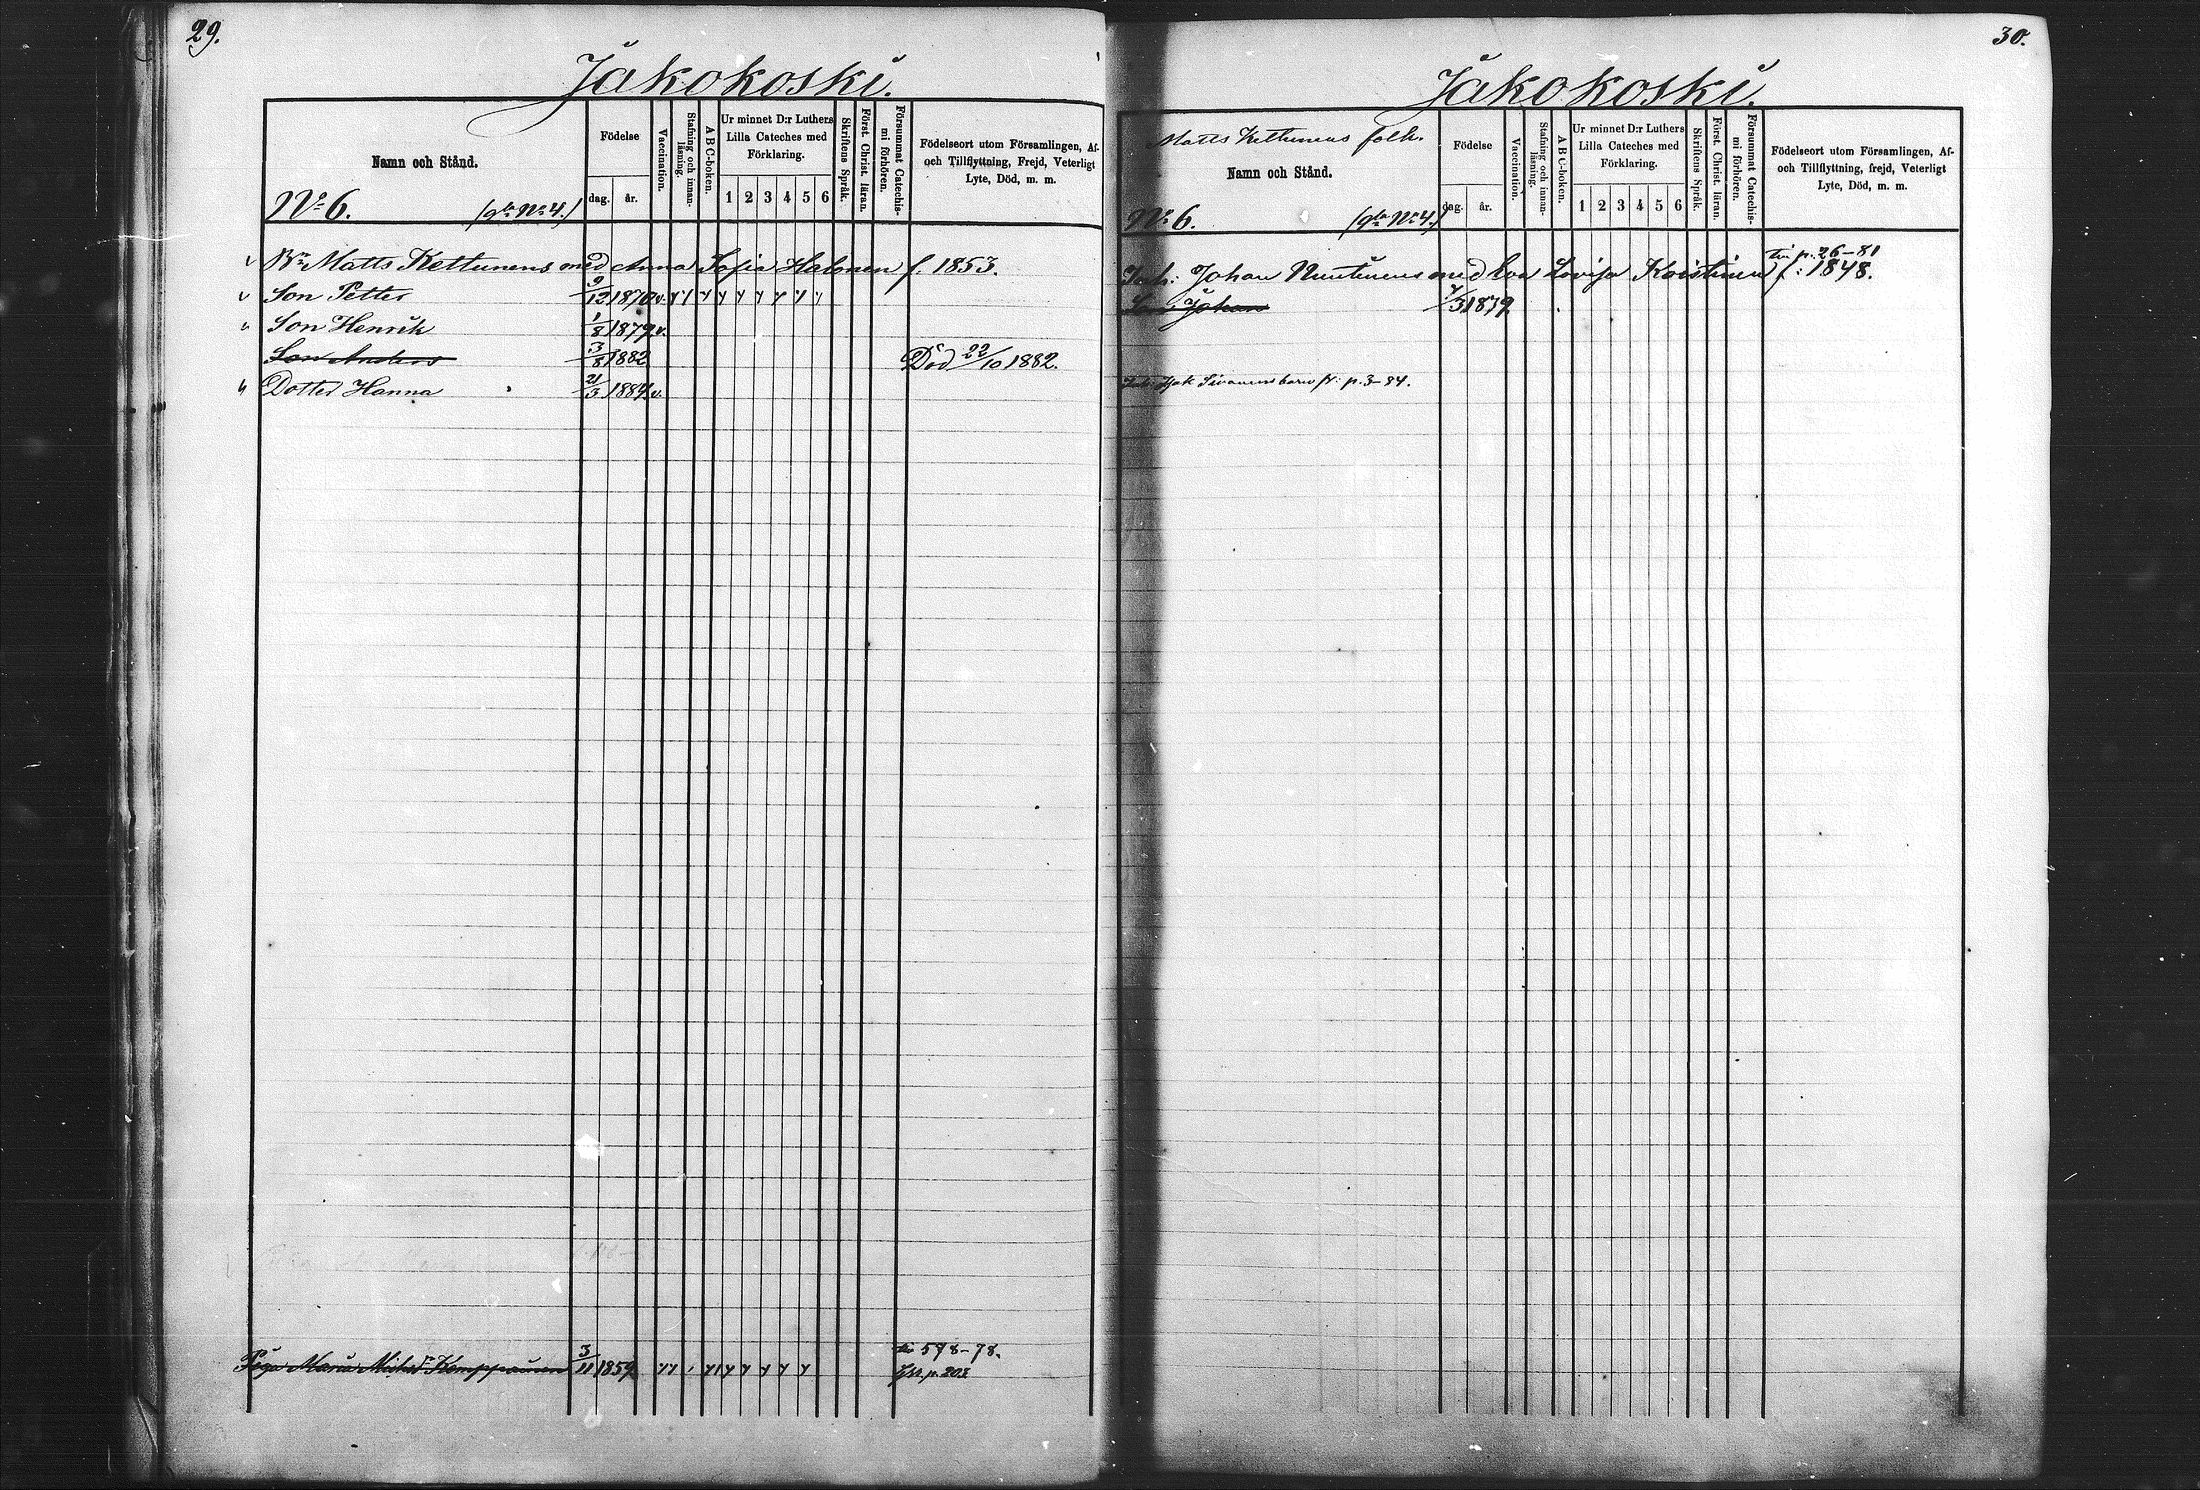 29.
Jakokoski.
Namn och Stånd.
Födelse
dag.
år.
Vaccination.
Stafning och innan-
läsning.
ABC-boken.
Ur minnet D:r Luthers
Lilla Cateches med
Förklaring.
1 2 3 4 5 6
Skriftens Språk.
Först. Christ. läran.
Försummat Catechis-
mi förhören.
Födelseort utom Församlingen, Af-
och Tillflyttning, Frejd, Veterligt
Lyte, Död, m. m.
No 6. (gla No 4.)
Bn Matts Kettunens med Anna Sofia Halonen f. 1853.
Son Petter 9/12 1876 v.
Son Henrik 1/8 1879 v.
Son Anders 3/8 1882 Död 22/10 1882.
Dotter Hanna 21/3 1884 v.
Piga Maria Michelsd:r Kemppainen 3/11 1859 578-78.
p. 203
30.
Jakokoski.
Matts Kettunens folk.
Namn och Stånd.
Födelse
dag.
år.
Vaccination.
Stafning och innan-
läsning.
ABC-boken.
Ur minnet D:r Luthers
Lilla Cateches med
Förklaring.
1 2 3 4 5 6
Skriftens Språk.
Först. Christ. läran.
Försummat Catechis-
mi förhören.
Födelseort utom Församlingen, Af-
och Tillflyttning, frejd, Veterligt
Lyte, Död, m. m.
No 6. (gla No 4.)
Inh: Johan Nuutinens med Eva Lovisa Koistinen f: 1848.
fr. p. 26-81
Son Johan 7/3 1879
Inh: Isak Sivonens barn fr: p. 3-84.